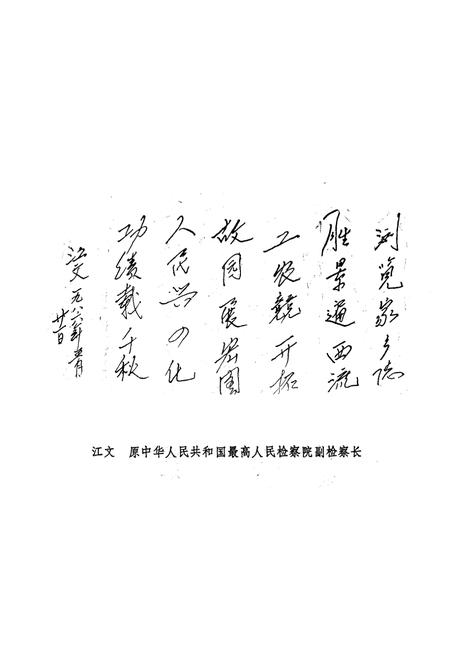 浏览家乡志
胜景通西流
工农竞开拓
故园展宏图
人民兴四化
功绩载千秋
江文 一九八六年
廿一日
江文 原中华人民共和国最高人民检察院副检察长